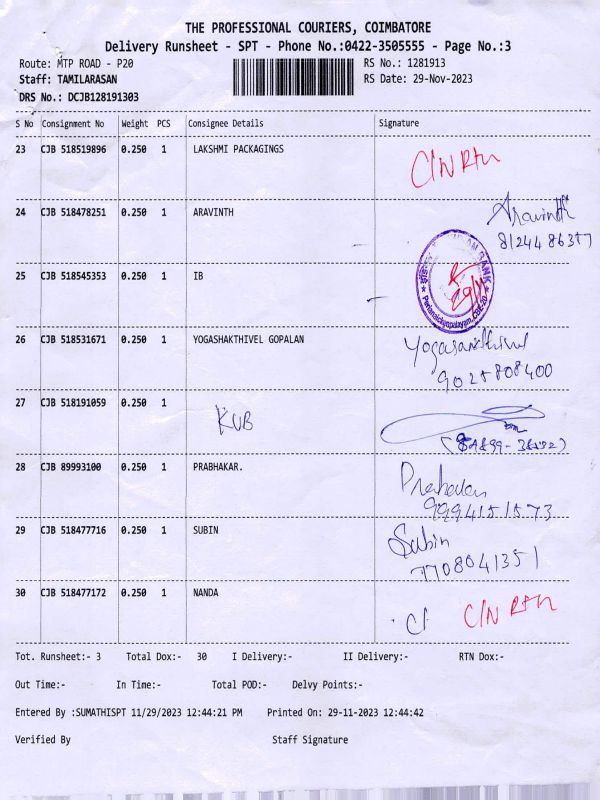 THE PROFESSIONAL COURIERS, COIMBATORE
Delivery Runsheet - SPT - Phone No.:0422-3505555 - Page No.:3
Route: MTP ROAD - P20 RS No.: 1281913
Staff: TAMILARASAN RS Date: 29-Nov-2023
DRS No.: DCJB128191303
S No Consignment No Weight PCS Consignee Details Signature
23 CJB 518519896 0.250 1 LAKSHMI PACKAGINGS C/N Rtn
24 CJB 518478251 0.250 1 ARAVINTH Aravinth
8124486377
25 CJB 518545353 0.250 1 IB
BANK
Perianaickenpalayam, CBE-20
26 CJB 518531671 0.250 1 YOGASHAKTHIVEL GOPALAN
9025808400
27 CJB 518191059 0.250 1 KVB
28 CJB 89993100 0.250 1 PRABHAKAR.
9994151573
29 CJB 518477716 0.250 1 SUBIN Subin
7708041351
30 CJB 518477172 0.250 1 NANDA C/ C/N Rtn
Tot. Runsheet:- 3 Total Dox:- 30 I Delivery:- II Delivery:- RTN Dox:-
Out Time:- In Time:- Total POD:- Delvy Points:-
Entered By :SUMATHISPT 11/29/2023 12:44:21 PM Printed On: 29-11-2023 12:44:42
Verified By Staff Signature